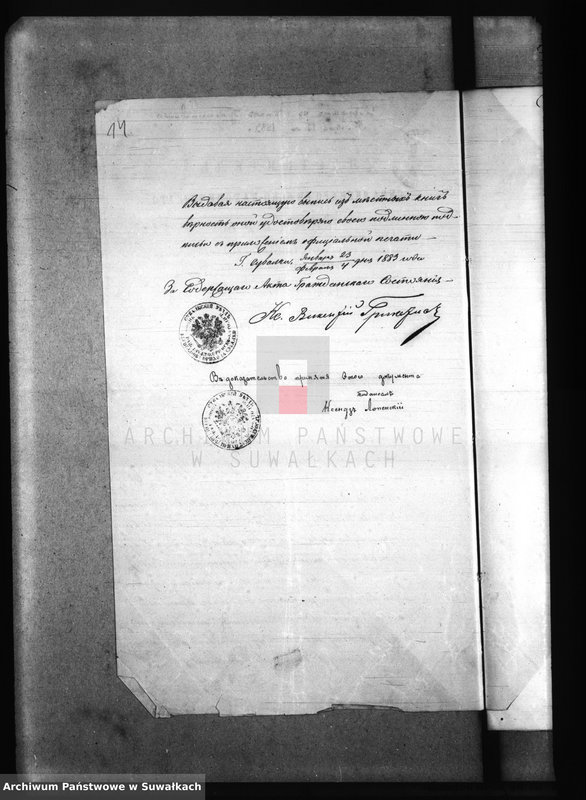 14
Выдавая настоящую выпись изъ местныхъ книгъ
верность оной удостоверяю своею подлинною под-
писью съ приложеніемъ официальной печати
Г. Сувалки, Января 23
Февраля 4 дня 1883 года
За Содержащаго Акта Гражданскаго Состоянія
К. Викентій
Въ доказательство принятія сего документа
подписалъ
Ксендзъ
ARCHIWUM PAŃSTWOWE
W SUWAŁKACH
Archiwum Państwowe w Suwałkach